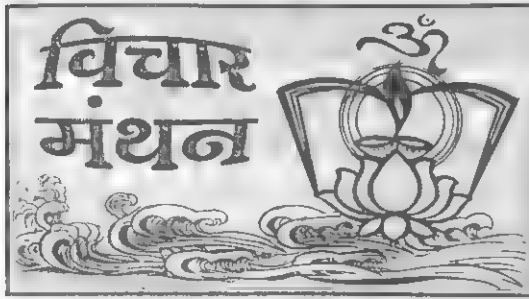 विचार
मंथन
ॐ